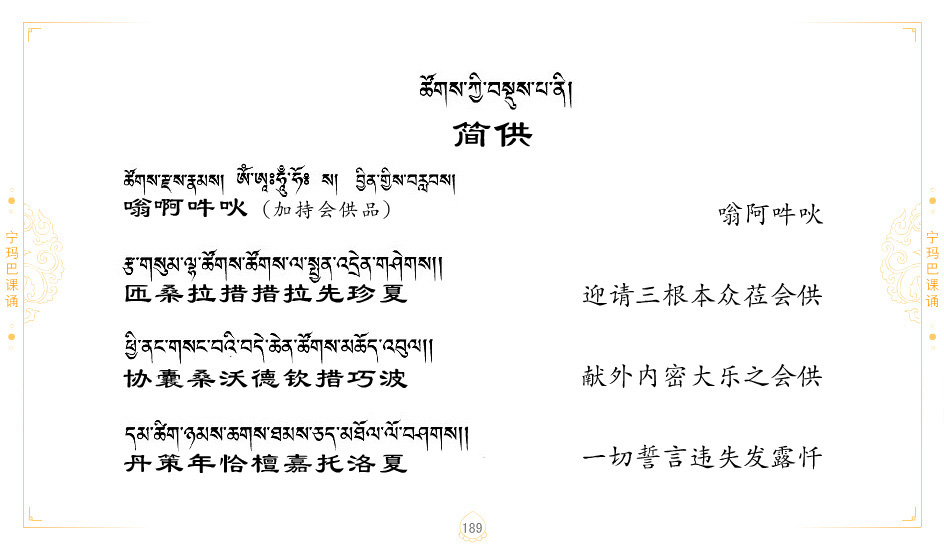 ཚོགས་ཀྱི་བསྡུས་པ་ནི།
简供
ཚོགས་རྫས་རྣམས། ༀ་ཨཱཿཧཱུྃ་ཧོཿ ས། བྱིན་གྱིས་བརླབས།
嗡啊吽吙（加持会供品）
嗡阿吽吙
རྩ་གསུམ་ལྷ་ཚོགས་ཚོགས་ལ་སྤྱན་འདྲེན་གཤེགས།།
匝桑拉措措拉先珍夏
迎请三根本众莅会供
ཕྱི་ནང་གསང་བའི་བདེ་ཆེན་ཚོགས་མཆོད་འབུལ།།
协囊桑沃德钦措巧波
献外内密大乐之会供
དམ་ཚིག་ཉམས་ཆགས་ཐམས་ཅད་མཐོལ་ལོ་བཤགས།།
丹策年恰檀嘉托洛夏
一切誓言违失发露忏
宁玛巴课诵
宁玛巴课诵
189